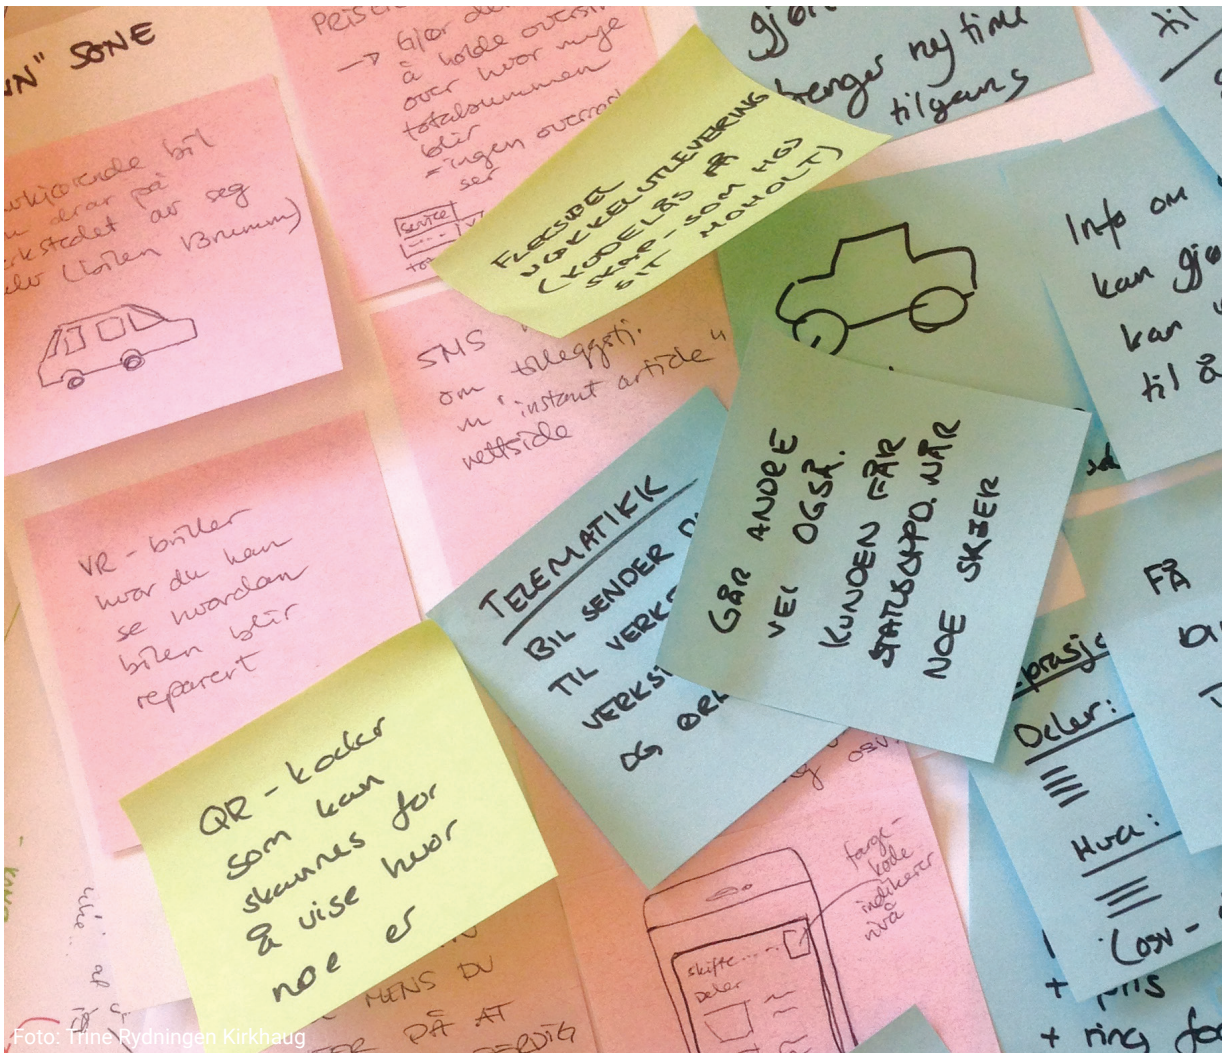 SONE
bil
drar på
av seg
(bilen Brumm)
→ Gjør det
å holde oversikt
over hvor mye
totalsummen
blir
=ingen overra
ser
service
FLEKSIBEL
NØKKELUTLEVERING
(KODELÅS PÅ
SKAP-SOM HOS
SIT MOHOLT)
ny time
tilgang
til
Info om
kan gjø
kan "
til å
SMS
om tilleggstj.
m "instant article"
nettside
VR-briller
hvor du kan
se hvordan
bilen blir
reparert
TELEMATIKK
BIL SENDER
TIL VERK
VERKST
OG
GÅR ANDRE
VEI OGSÅ.
KUNDEN FÅR
STATUSOPPD. NÅR
NOE SKJER
FÅ
Deler:
Hva:
(osv-
+ pris
+ ring for
QR-koder
som kan
skannes for
å vise hvor
noe er
osv.
farge-
kode
indikerer
nivå
skifte....
Deler
MENS DU
PÅ AT
Foto: Trine Rydningen Kirkhaug